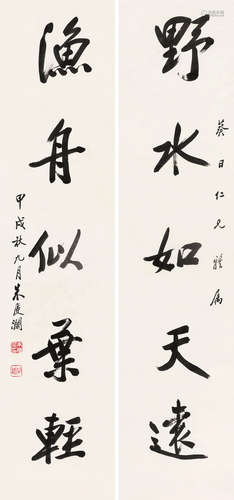 野水如天遠
葵日仁兄雅屬
漁舟似葉輕
甲戌秋九月朱慶瀾